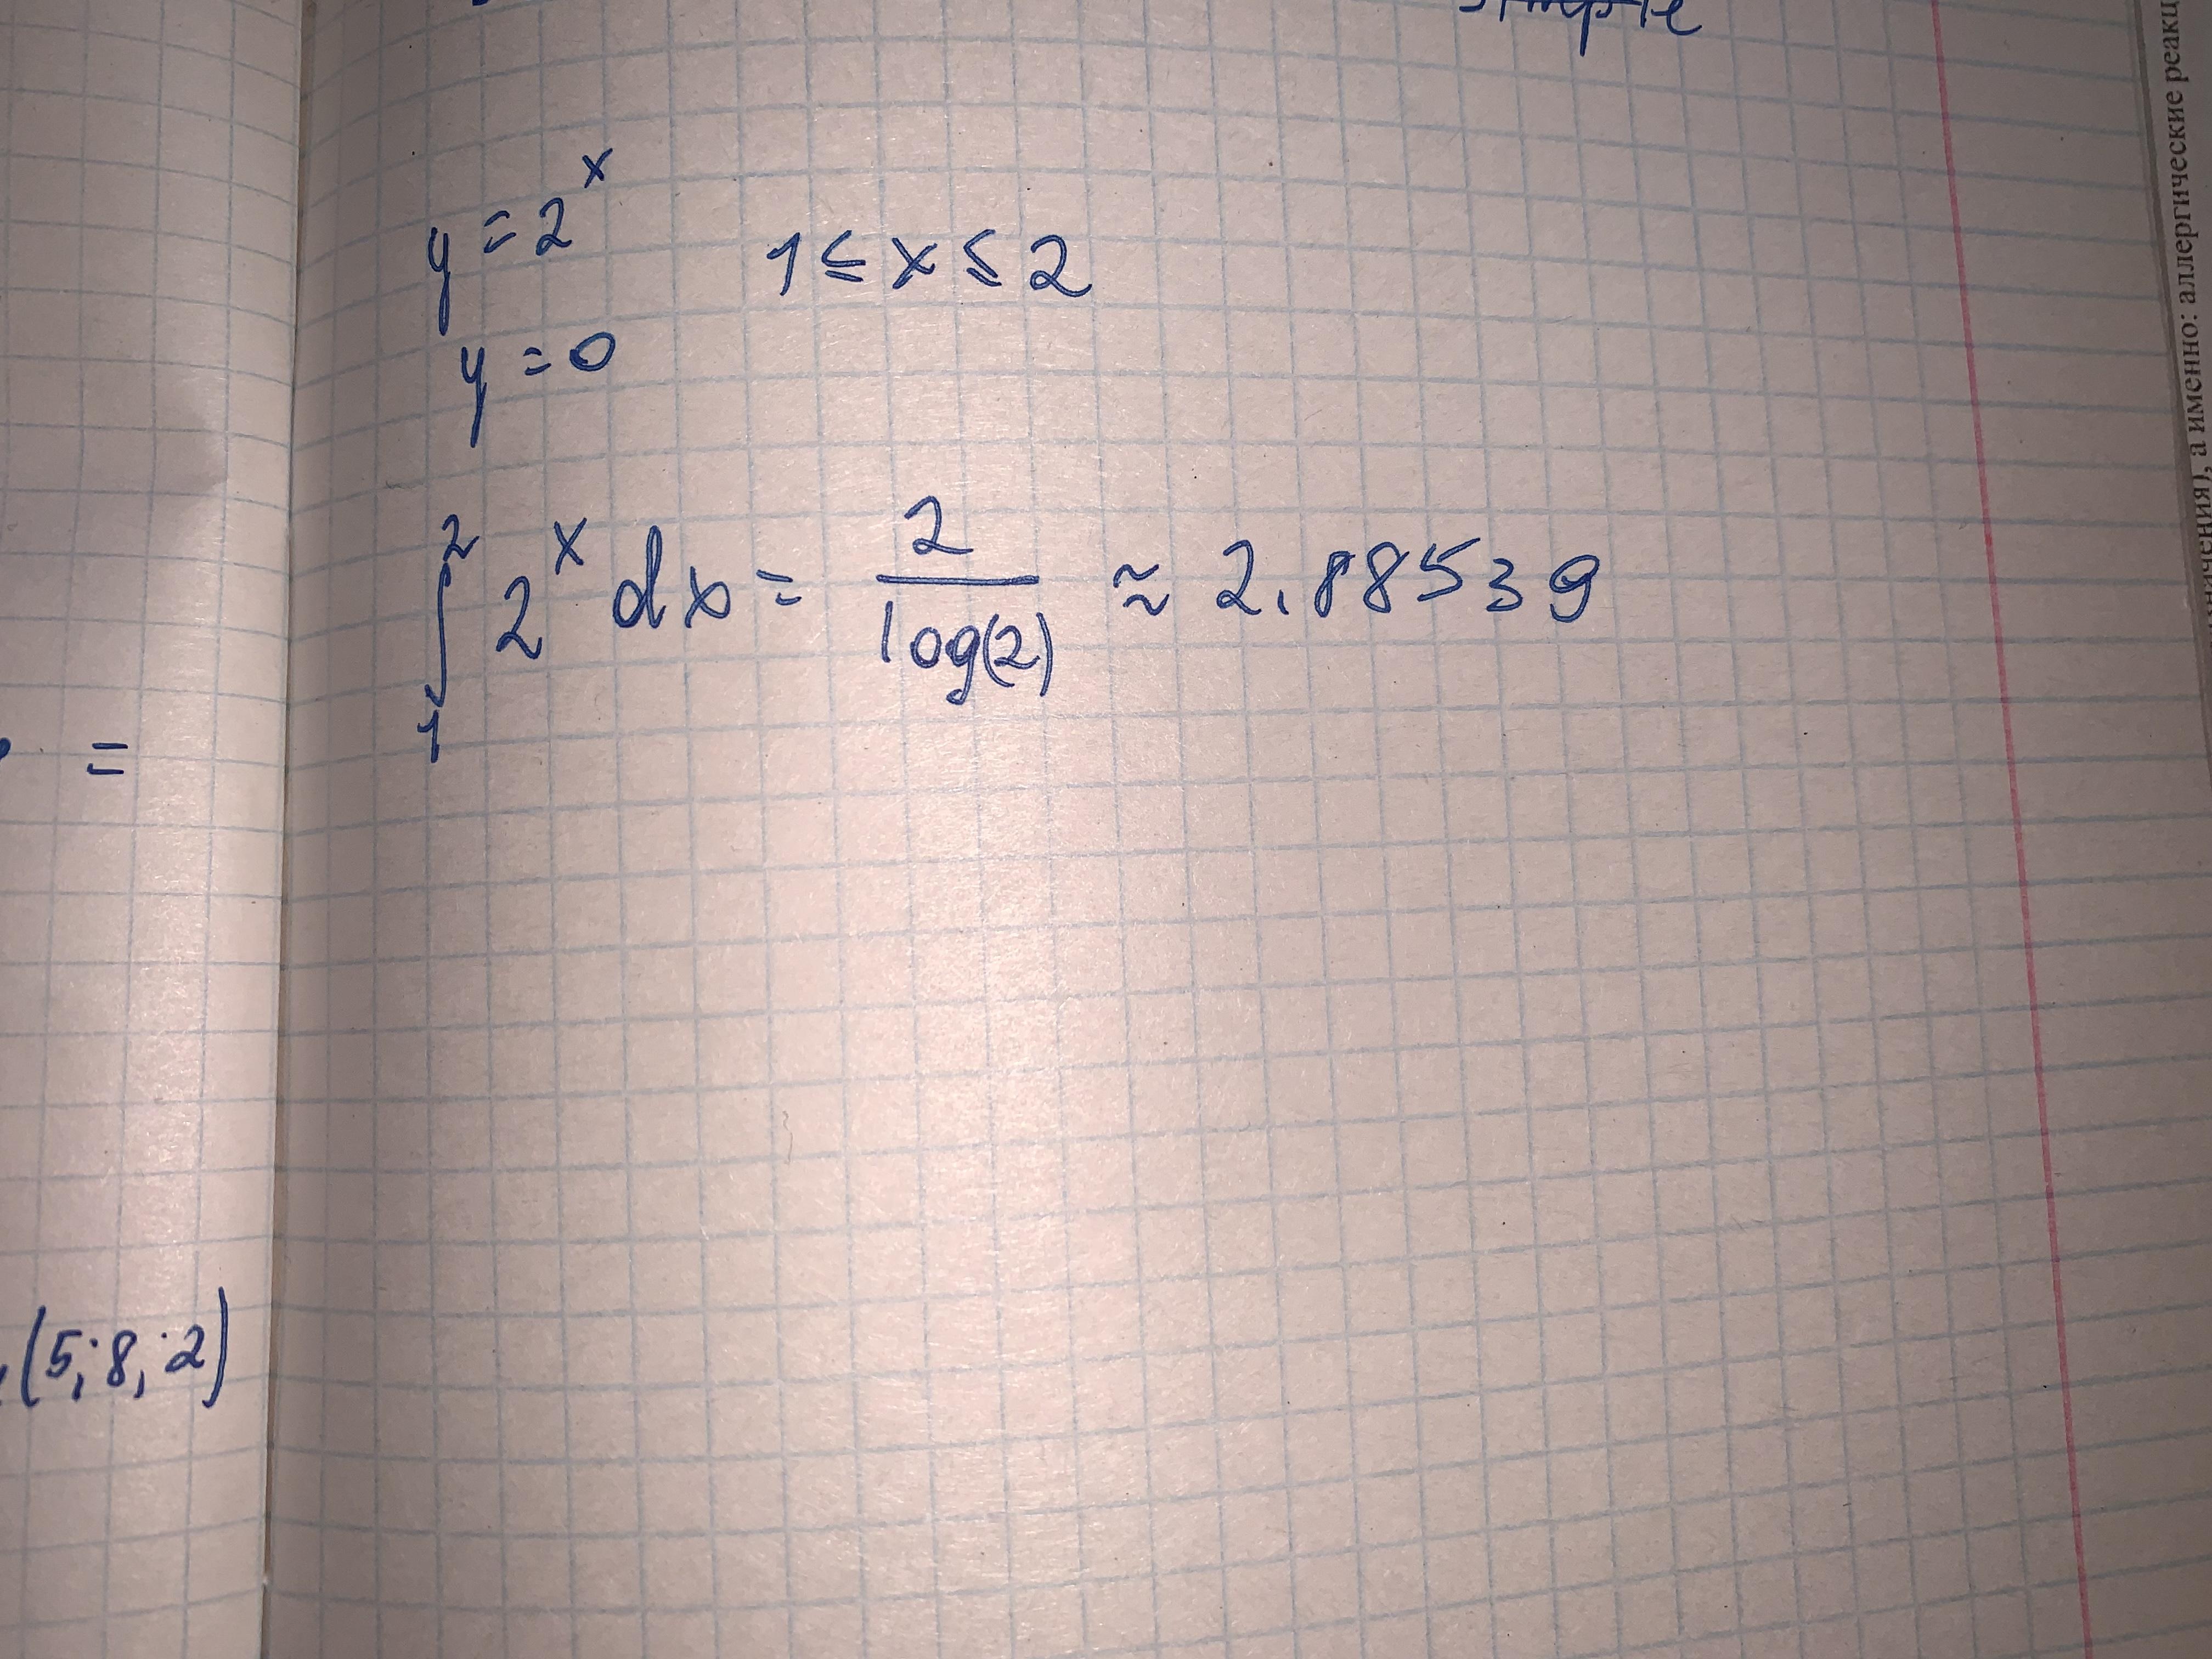 y = 2^x
1 ≤ x ≤ 2
y = 0
∫_1^2 2^x dx = 2/log(2) ≈ 2.88539
=
(5; 8; 2)
а именно: аллергические реакц